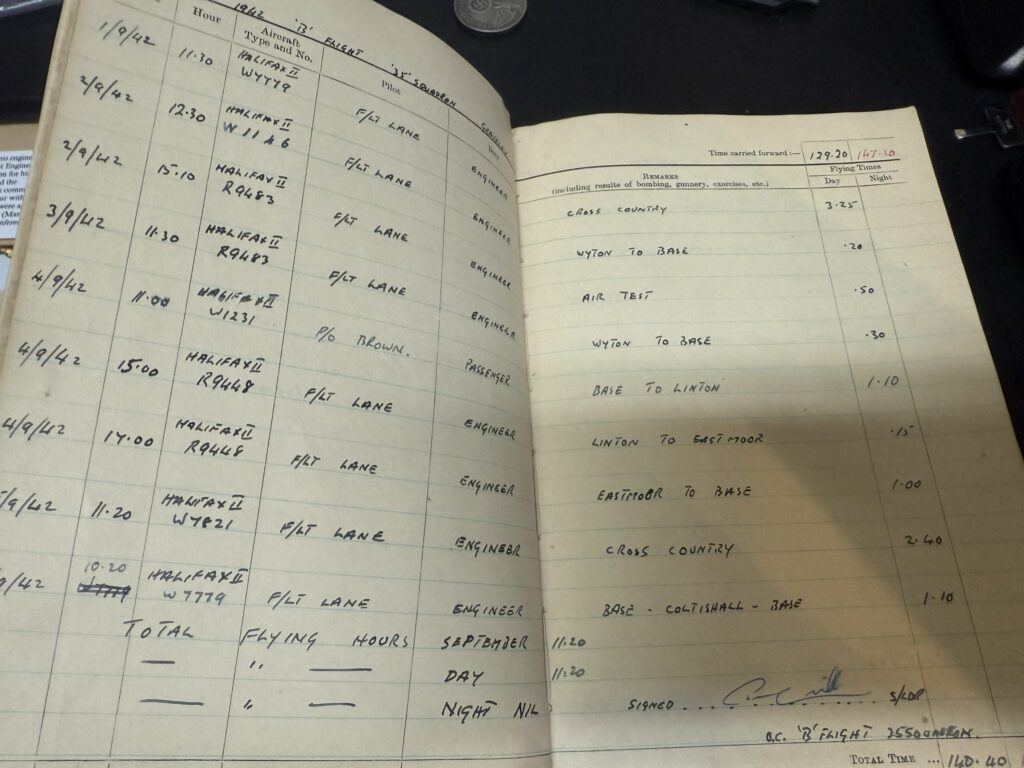 1942 'B' FLIGHT '35' SQUADRON
Hour Aircraft Type and No. Pilot
1/9/42 11.30 HALIFAX II W7779 F/LT LANE ENGINEER
2/9/42 12.30 HALIFAX II W1146 F/LT LANE ENGINEER
2/9/42 15.10 HALIFAX II R9483 F/LT LANE ENGINEER
3/9/42 11.30 HALIFAX II R9483 F/LT LANE ENGINEER
4/9/42 11.00 HALIFAX II W1231 P/O BROWN. PASSENGER
4/9/42 15.00 HALIFAX II R9448 F/LT LANE ENGINEER
4/9/42 17.00 HALIFAX II R9448 F/LT LANE ENGINEER
/9/42 11.20 HALIFAX II W7821 F/LT LANE ENGINEER
9/42 10.20 HALIFAX II W7779 F/LT LANE ENGINEER
TOTAL FLYING HOURS SEPTEMBER 11.20
— " — DAY 11.20
— " — NIGHT NIL
Time carried forward :— 129.20 147.30
Remarks Flying Times
(including results of bombing, gunnery, exercises, etc.) Day Night
CROSS COUNTRY 3.25
WYTON TO BASE .20
AIR TEST .50
WYTON TO BASE .30
BASE TO LINTON 1.10
LINTON TO EASTMOOR .15
EASTMOOR TO BASE 1.00
CROSS COUNTRY 2.40
BASE - COLTISHALL - BASE 1.10
SIGNED ........ S/LDR
O.C. 'B' FLIGHT 35 SQUADRON.
Total Time ... 140.40